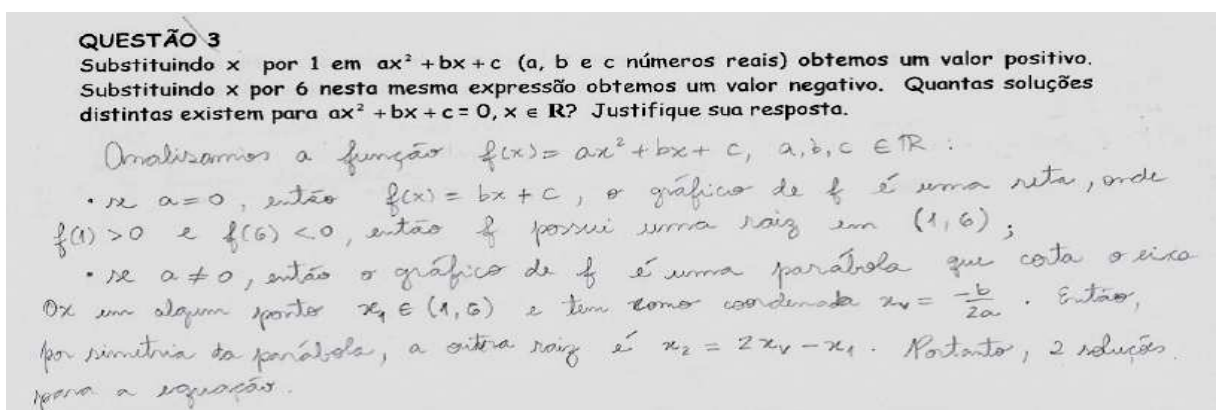 QUESTÃO 3
Substituindo x por 1 em ax² + bx + c (a, b e c números reais) obtemos um valor positivo.
Substituindo x por 6 nesta mesma expressão obtemos um valor negativo. Quantas soluções
distintas existem para ax² + bx + c = 0, x ∈ R? Justifique sua resposta.
Analisamos a função f(x) = ax² + bx + c, a, b, c ∈ ℝ :
• se a=0, então f(x) = bx + c, o gráfico de f é uma reta, onde
f(1) > 0 e f(6) < 0, então f possui uma raiz em (1,6) ;
• se a ≠ 0, então o gráfico de f é uma parábola que corta o eixo
Ox em algum ponto x₁ ∈ (1,6) e tem como coordenada xᵥ = -b/2a . Então,
por simetria da parábola, a outra raiz é x₂ = 2xᵥ - x₁. Portanto, 2 soluções
para a equação.